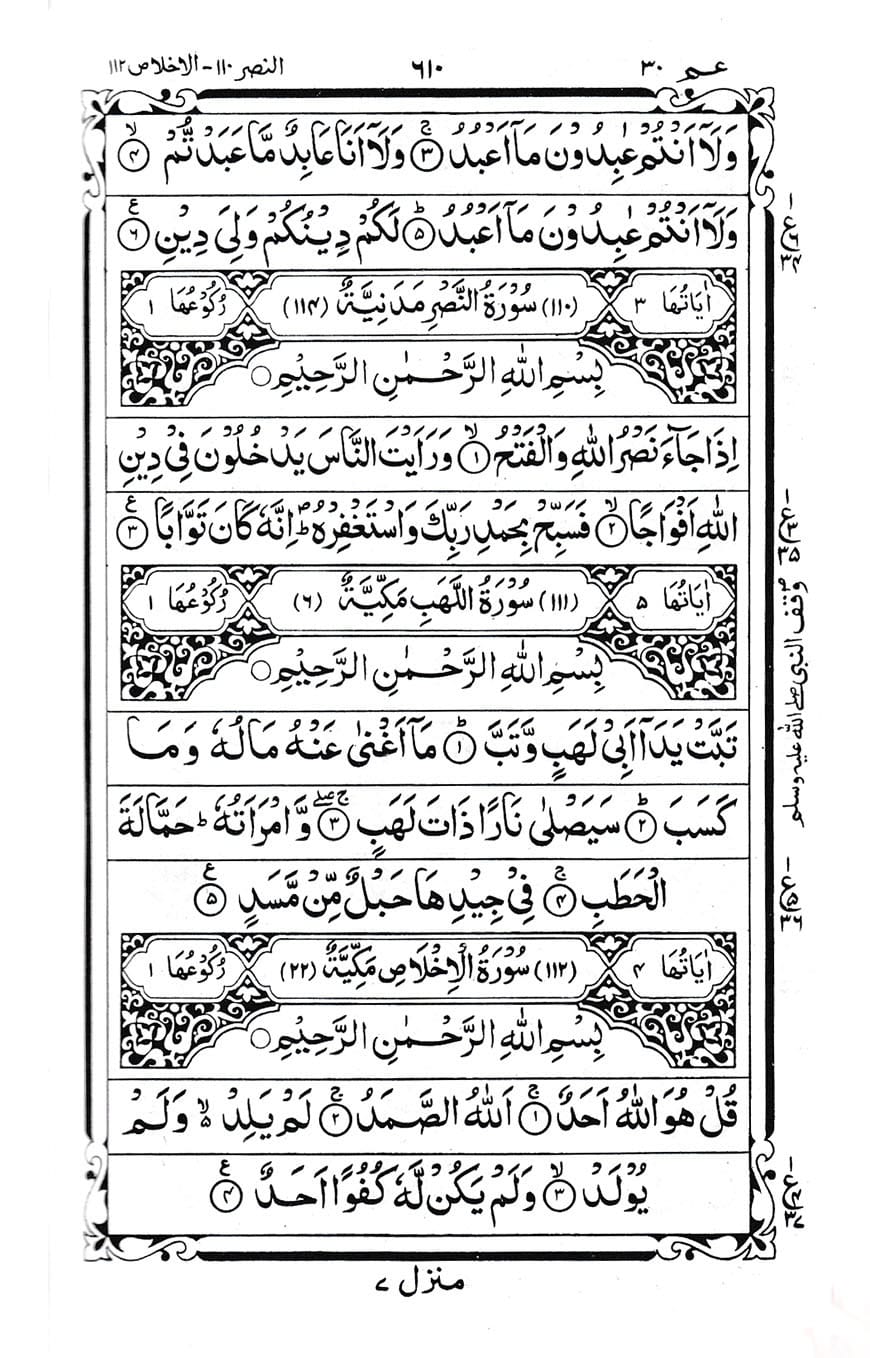 عـم ٣٠
٦١٠
النصر ١١٠ - الاخلاص ١١٢
وَلَآ اَنْتُمْ عٰبِدُوْنَ مَآ اَعْبُدُ ۚ ﴿۳﴾ وَلَآ اَنَا عَابِدٌ مَّا عَبَدْتُّمْ ۙ ﴿۴﴾
وَلَآ اَنْتُمْ عٰبِدُوْنَ مَآ اَعْبُدُ ؕ ﴿۵﴾ لَكُمْ دِيْنُكُمْ وَلِیَ دِيْنِ ﴿۶﴾ ع
اٰيَاتُهَا ٣ (١١٠) سُوْرَةُ النَّصْرِ مَدَنِيَّةٌ (١١۴) رُكُوْعُهَا ١
بِسْمِ اللّٰهِ الرَّحْمٰنِ الرَّحِيْمِ ○
اِذَا جَآءَ نَصْرُ اللّٰهِ وَالْفَتْحُ ۙ ﴿۱﴾ وَرَاَيْتَ النَّاسَ يَدْخُلُوْنَ فِیْ دِيْنِ
اللّٰهِ اَفْوَاجًا ۙ ﴿۲﴾ فَسَبِّحْ بِحَمْدِ رَبِّكَ وَاسْتَغْفِرْهُ ؕؔ اِنَّهٗ كَانَ تَوَّابًا ﴿۳﴾ ع
اٰيَاتُهَا ۵ (١١١) سُوْرَةُ اللَّهَبِ مَكِّيَّةٌ (٦) رُكُوْعُهَا ١
بِسْمِ اللّٰهِ الرَّحْمٰنِ الرَّحِيْمِ ○
تَبَّتْ يَدَآ اَبِیْ لَهَبٍ وَّتَبَّ ؕ ﴿۱﴾ مَآ اَغْنٰی عَنْهُ مَالُهٗ وَمَا
كَسَبَ ؕ ﴿۲﴾ سَيَصْلٰی نَارًا ذَاتَ لَهَبٍ ۚۖ ﴿۳﴾ وَّامْرَاَتُهٗ ؕ حَمَّالَةَ
الْحَطَبِ ۚ ﴿۴﴾ فِیْ جِيْدِهَا حَبْلٌ مِّنْ مَّسَدٍ ﴿۵﴾ ع
اٰيَاتُهَا ۴ (١١٢) سُوْرَةُ الْاِخْلَاصِ مَكِّيَّةٌ (٢٢) رُكُوْعُهَا ١
بِسْمِ اللّٰهِ الرَّحْمٰنِ الرَّحِيْمِ ○
قُلْ هُوَ اللّٰهُ اَحَدٌ ۚ ﴿۱﴾ اَللّٰهُ الصَّمَدُ ۚ ﴿۲﴾ لَمْ يَلِدْ ۙ۬ وَلَمْ
يُوْلَدْ ۙ ﴿۳﴾ وَلَمْ يَكُنْ لَّهٗ كُفُوًا اَحَدٌ ﴿۴﴾ ع
وقف النبی صلے الله عليه وسلم
منزل ٧